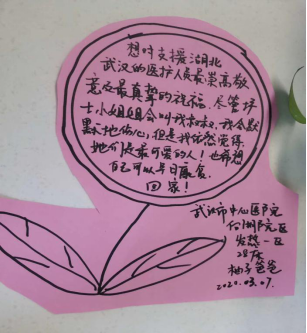 想对支援湖北
武汉的医护人员最崇高敬
意及最真挚的祝福.尽管护
士小姐姐会叫我叔叔,我会默
默地伤心,但是我依然觉得
她们是最可爱的人!也希望
自己可以早日康复.
回家!
武汉市中心医院
后湖院区
发热一区
28床
柚子爸爸
2020.03.07.